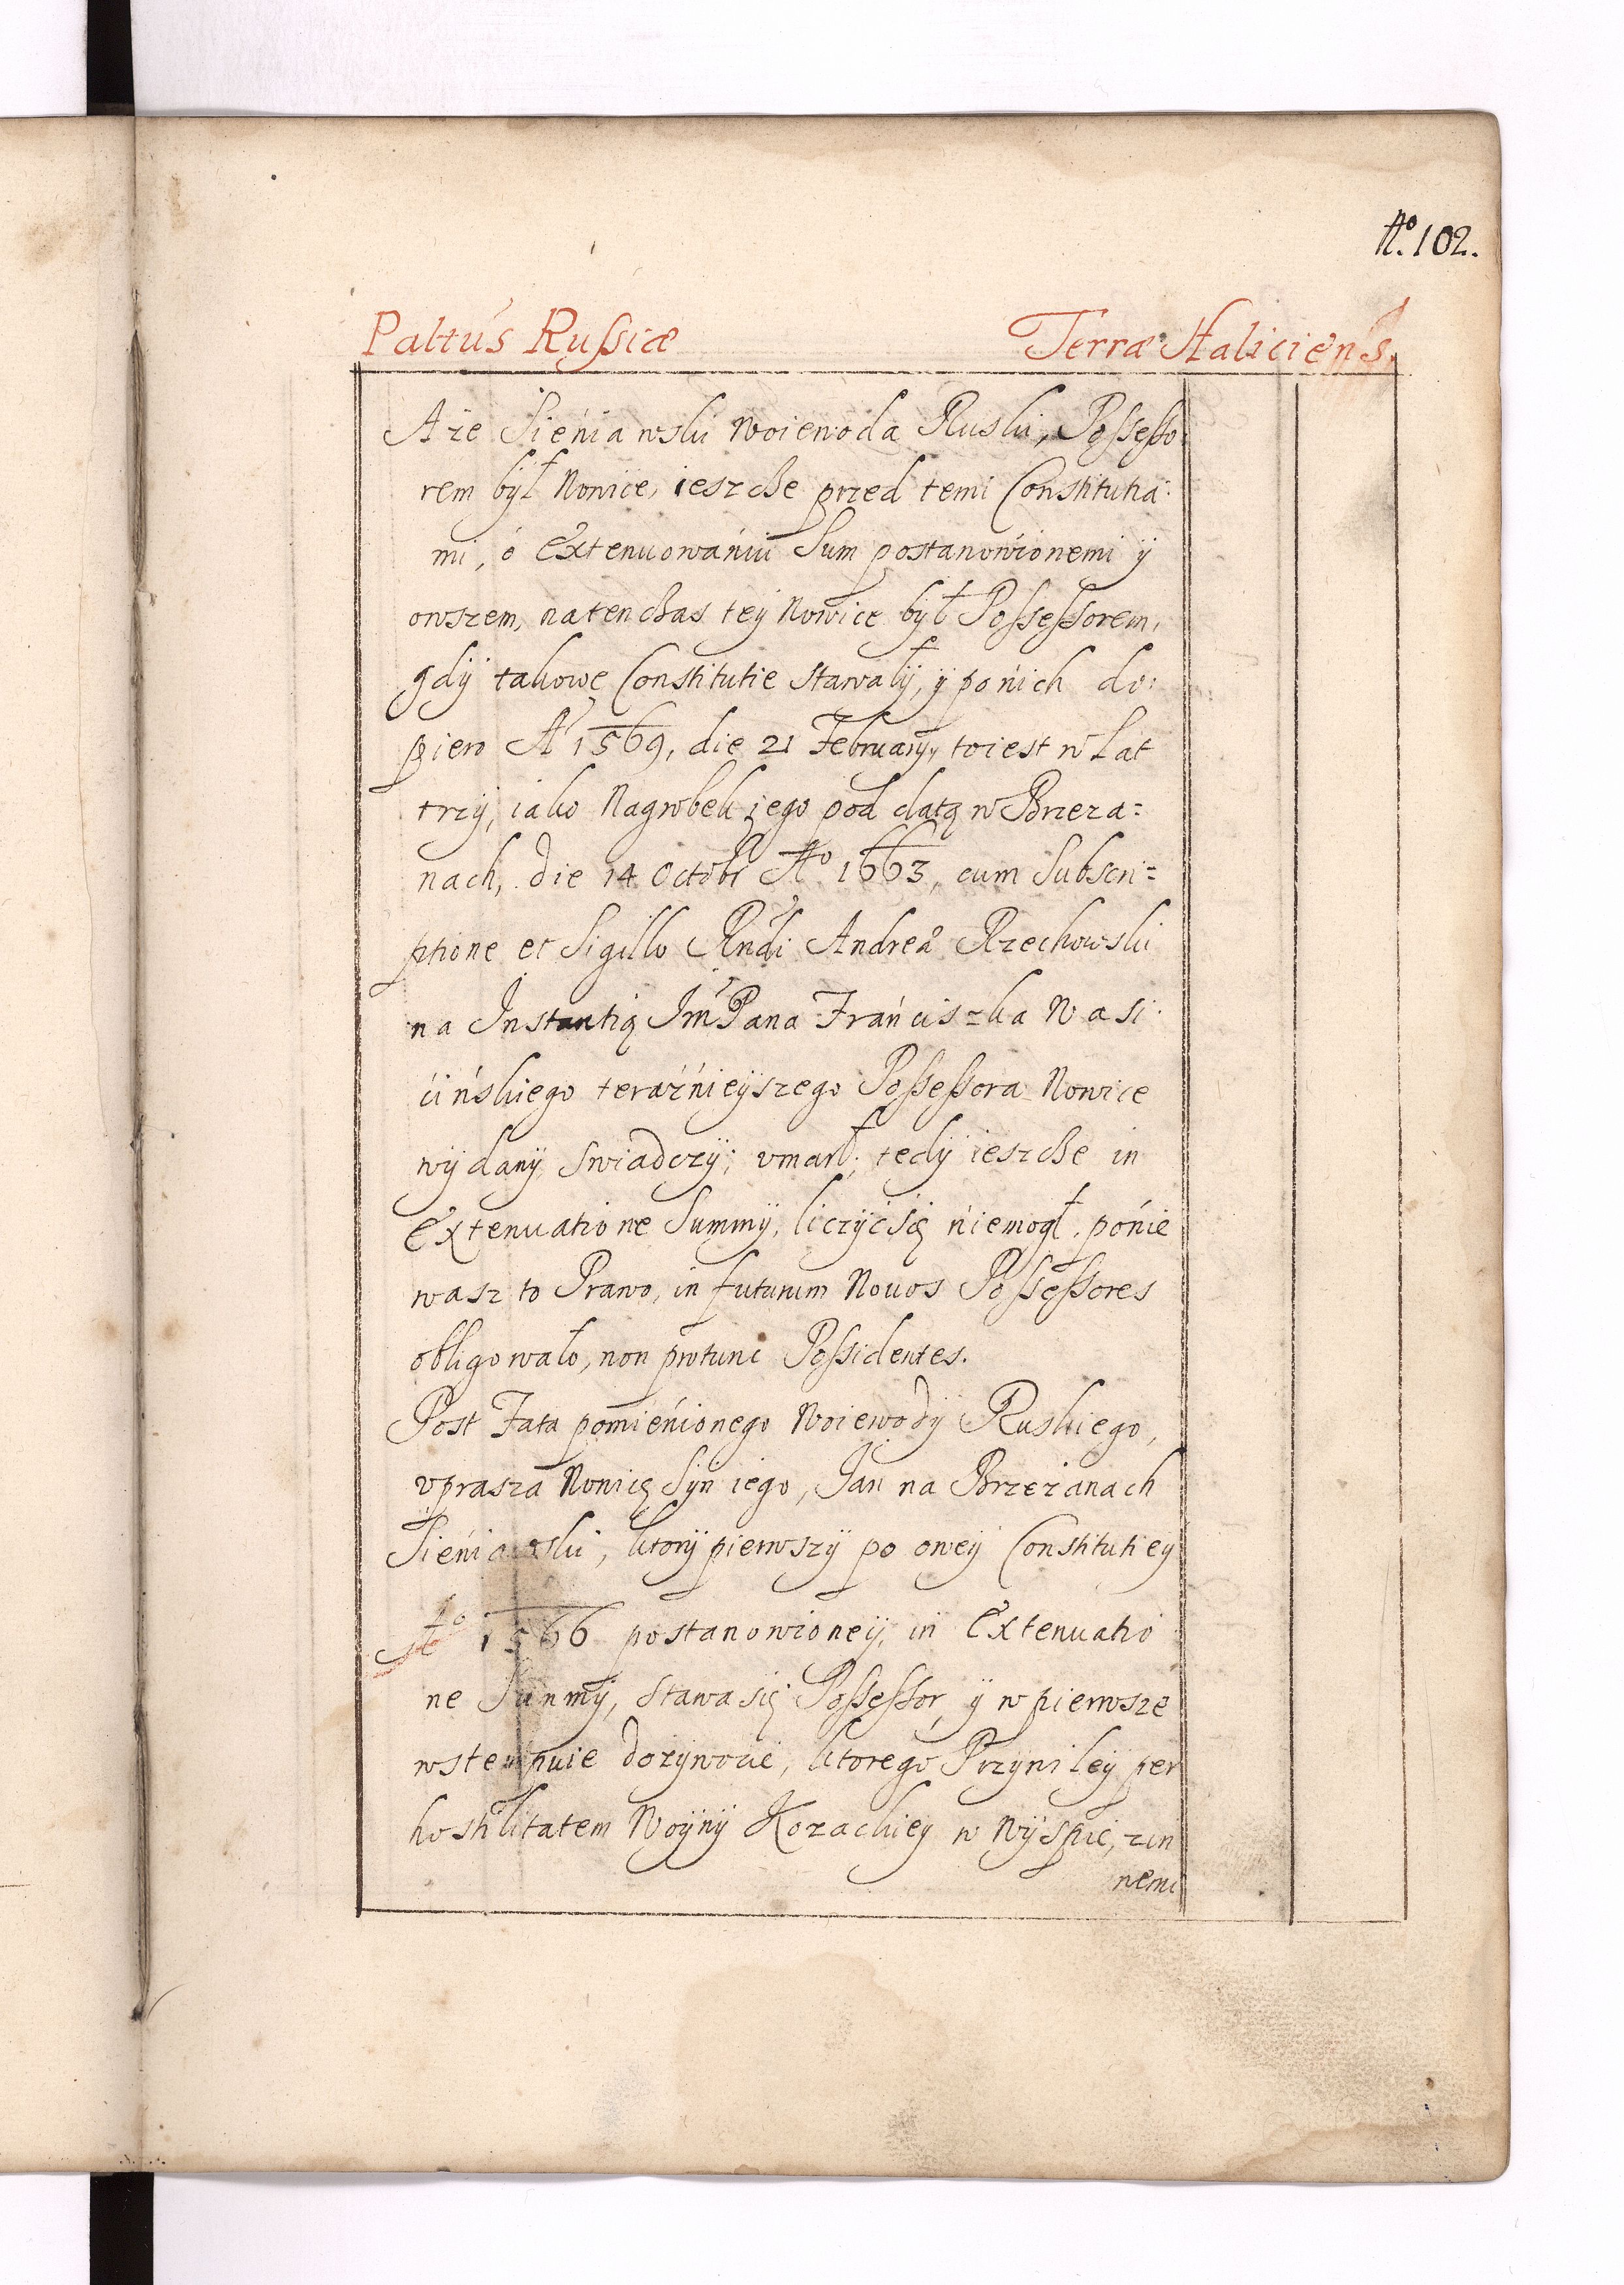 No. 102.
Paltus Russiæ Terræ Haliciens.
A że Sieniawski Woiewoda Ruski, Possesso:
rem był Nowice, ieszcze przed temi Constitutia:
mi, o Extenuowaniu Sum postanowionemi ÿ
owszem, natenczas teÿ Nowice bÿł Possessorem,
gdÿ takowe Constitutie stawałÿ, ÿ ponich do:
piero Ao 1569, die 21 Februarÿ, toiest w Lat
trzÿ, iako Nagrobek iego pod datą w Brzeża=
nach, die 14 Octobr Ao 1663, cum Subscri=
ptione et Sigillo Rndi Andreæ Rzechowski
na Instantią Jm Pana Franciszka Wasi:
cińskiego teraźnieÿszego Possessora Nowice
wÿdanÿ swiadczÿ; vmarł; tedÿ ieszcze in
Extenuatione Summÿ, liczÿć się niemogł, ponie
wasz to Prawo, in futurum Novos Possessores
obligowało, non protunc Possidentes.
Post Fata pomienionego Woiewodÿ Ruskiego,
vprasza Nowicę Sÿn iego, Jan na Brzeżanach
Sieniawski, ktorÿ pierwszÿ po oweÿ Constitutieÿ
Ao 1566 postanowioneÿ, in Extenuatio
ne Summÿ, stawa się Possessor, ÿ w pierwsze
wstempuie dożÿwocie, ktorego Przÿwileÿ per
hostilitatem Woÿnÿ Kozackieÿ w Wÿspie, zin
nemi